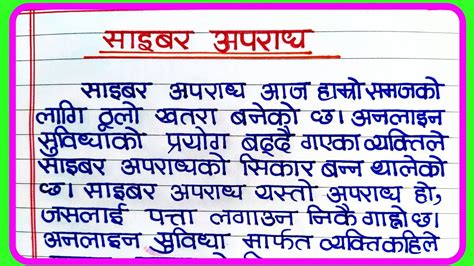 साइबर अपराध
साइबर अपराध आज हाम्रो समाजको
लागि ठूलो खतरा बनेको छ। अनलाइन
सुविधाको प्रयोग बढ्दै गएका व्यक्तिले
साइबर अपराधको सिकार बन्न थालेको
छ। साइबर अपराध यस्तो अपराध हो,
जसलाई पत्ता लगाउन निकै गाह्रो छ।
अनलाइन सुविधा मार्फत व्यक्तिकहिले